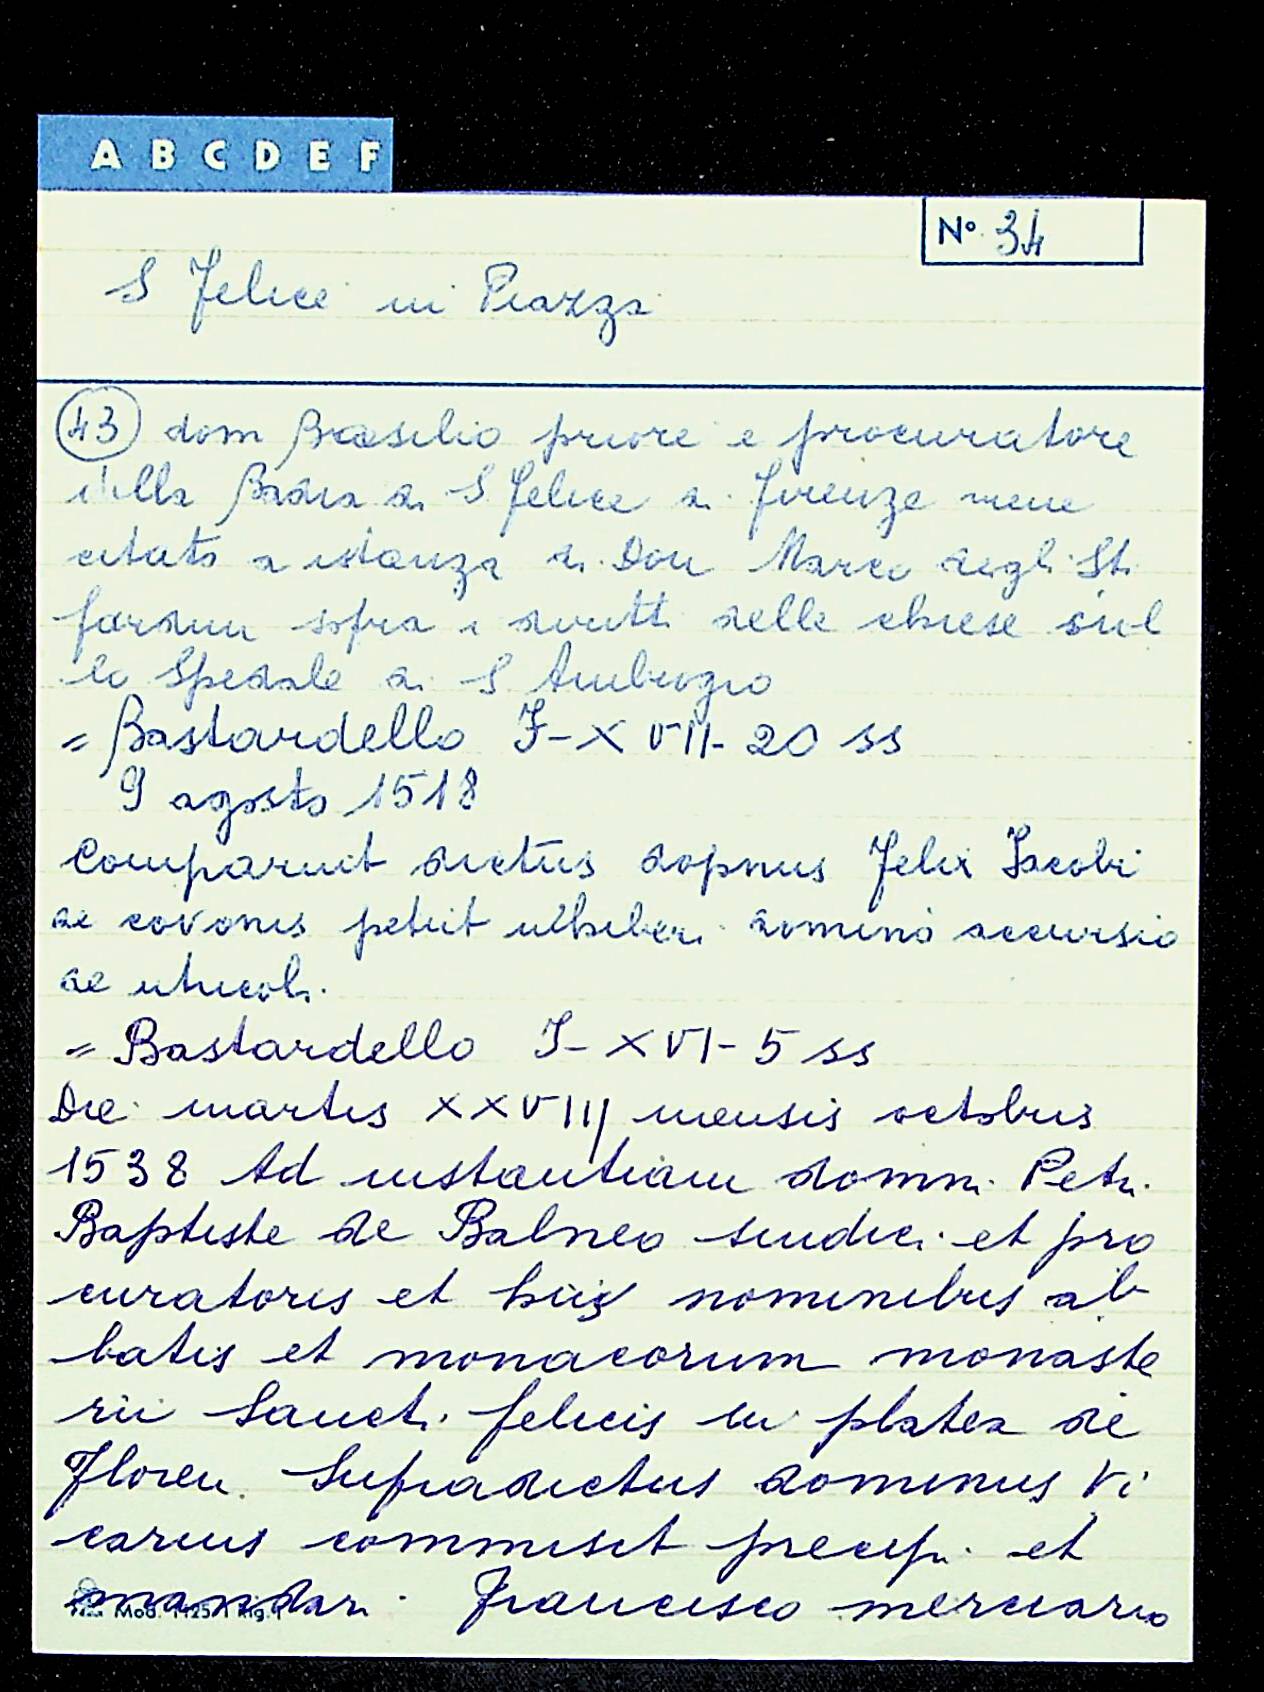 A B C D E F
N° 34
S Felice in Piazza
43 dom Basilio priore e procuratore
della Badia di S Felice di Firenze viene
citato a istanza di Don Marco degli
sopra i diritti delle chiese sul
lo Spedale di S Ambrogio
= Bastardello I-XVII-20 ss
9 agosto 1518
Comparuit dictus dopnus Felix Jacobi
de covonis petiit domino accursio
de
= Bastardello I-XVI-5 ss
Die martis XXVIIII mensis octobris
1538 Ad instantiam domni Petri
Baptiste de Balneo sindici et pro
curatoris et nominibus ab
batis et monacorum monaste
rii Sancti felicis in platea de
Floren. Supradictus dominus Vi
carius commisit precip. et
mandari Francisco merciario
Mod.